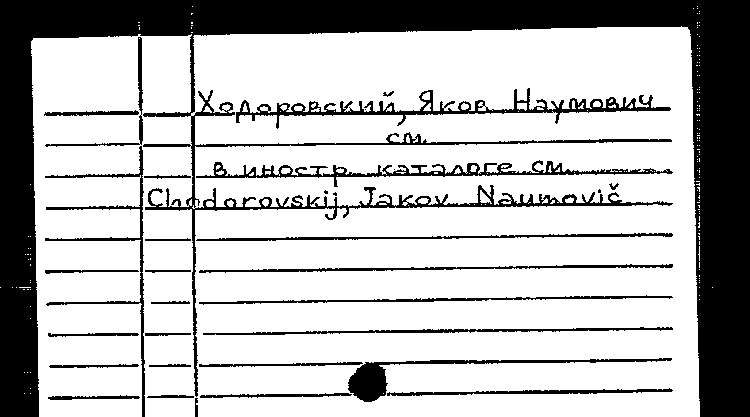 Ходоровский, Яков Наумович
см.
в иностр. каталоге см.
Chodorovskij, Jakov Naumovič